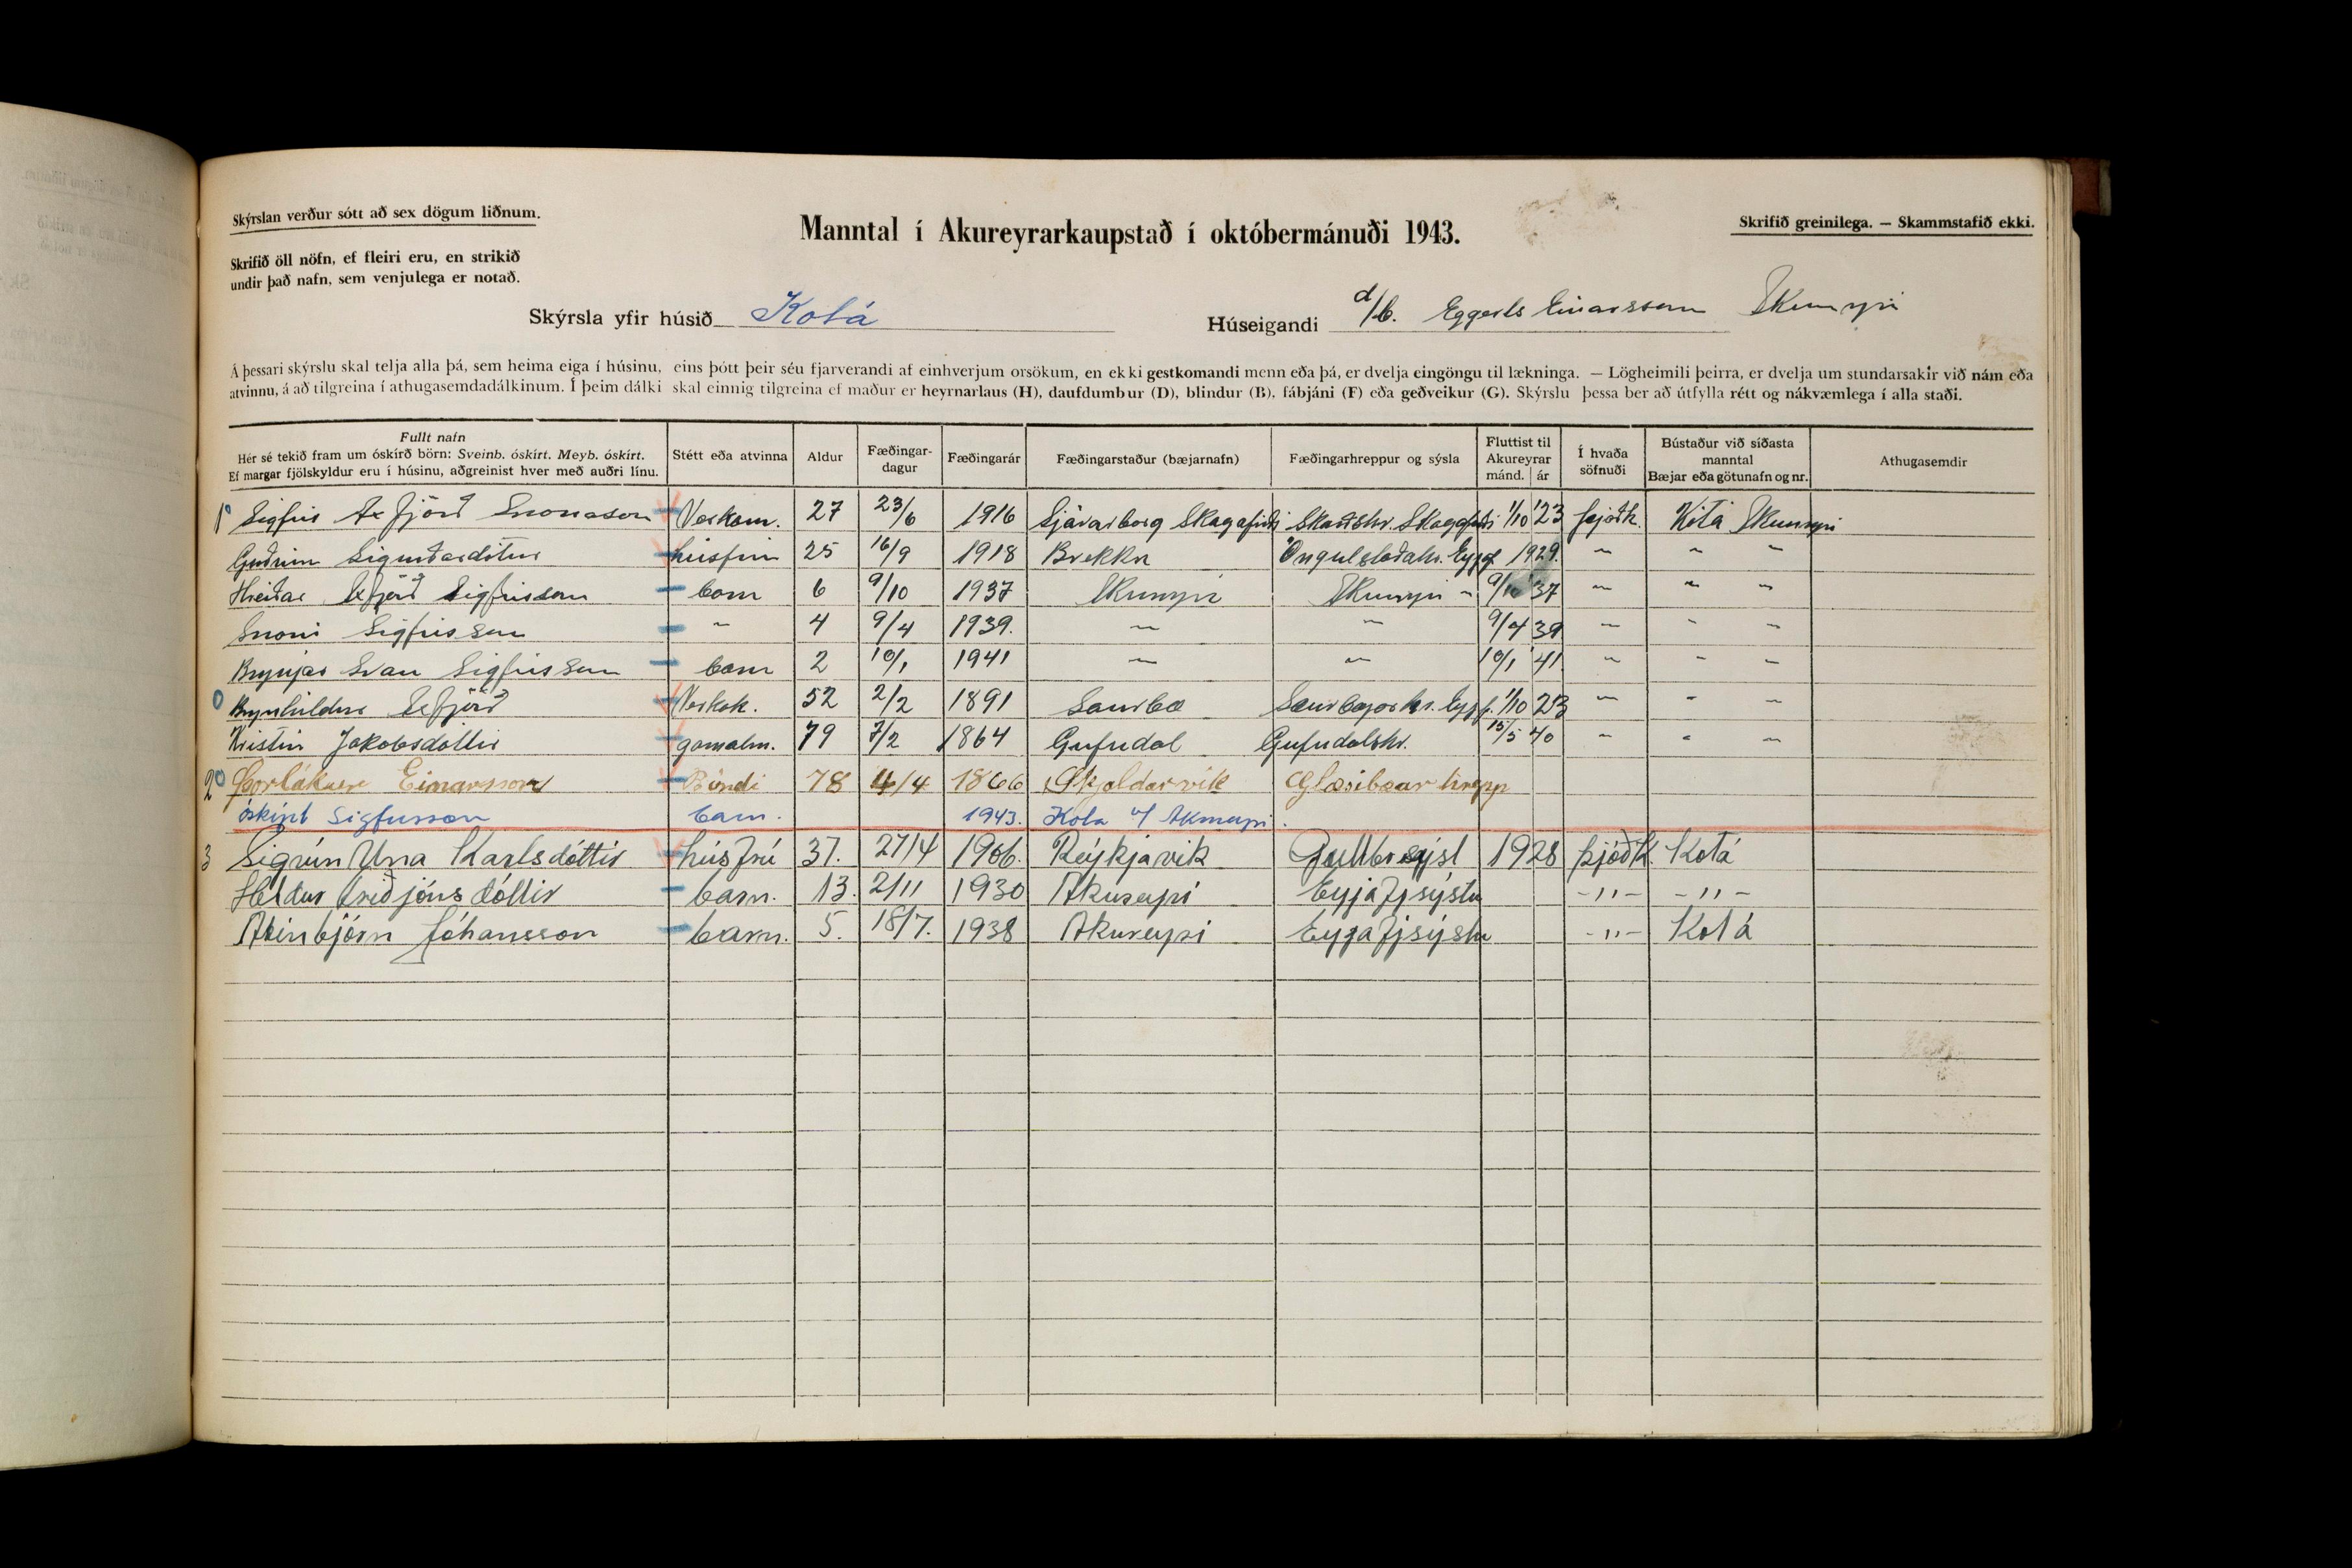 Skýrslan verður sótt að sex dögum liðnum.
Manntal í Akureyrarkaupstað í októbermánuði 1943.
Skrifið greinilega. — Skammstafið ekki.
Skrifið öll nöfn, ef fleiri eru, en strikið
undir það nafn, sem venjulega er notað.
Skýrsla yfir húsið Kotá
Húseigandi d/b. Eggerts Einarssonar Akureyri
Á þessari skýrslu skal telja alla þá, sem heima eiga í húsinu, eins þótt þeir séu fjarverandi af einhverjum orsökum, en ekki gestkomandi menn eða þá, er dvelja eingöngu til lækninga. — Lögheimili þeirra, er dvelja um stundarsakir við nám eða
atvinnu, á að tilgreina í athugasemdadálkinum. Í þeim dálki skal einnig tilgreina ef maður er heyrnarlaus (H), daufdumbur (D), blindur (B), fábjáni (F) eða geðveikur (G). Skýrslu þessa ber að útfylla rétt og nákvæmlega í alla staði.
Fullt nafn
Hér sé tekið fram um óskírð börn: Sveinb. óskírt. Meyb. óskírt.
Ef margar fjölskyldur eru í húsinu, aðgreinist hver með auðri línu.
Stétt eða atvinna
Aldur
Fæðingar-
dagur
Fæðingarár
Fæðingarstaður (bæjarnafn)
Fæðingarhreppur og sýsla
Fluttist til
Akureyrar
mánd. ár
Í hvaða
söfnuði
Bústaður við síðasta
manntal
Bæjar eða götunafn og nr.
Athugasemdir
1 Sigfús Axfjörð Snorrason Verkam. 27 23/6 1916 Sjávarborg Skagafirði Skarðshr. Skagafirði 1/10 '23 þjóðk. Kotá Akureyri
Guðrún Sigurðardóttur húsfrú 25 16/9 1918 Brekku Öngulstaðahr. Eyjf 1929. " " "
Hreiðar Axfjörð Sigfússon barn 6 9/10 1937 Akureyri Akureyri 9/10 37 " " "
Snorri Sigfússon " 4 9/4 1939. " " 9/4 39 " " "
Brynjar Svan Sigfússon barn 2 10/1 1941 " " 10/1 41 " " "
Brynhildur Axfjörð Verkak. 52 2/2 1891 Saurbæ Saurbæjarhr. Eyjf. 1/10 23 " " "
Kristín Jakobsdóttir gamalm. 79 7/2 1864 Gufudal Gufudalshr. 15/5 40 " " "
2 Þorlákur Einarsson Bóndi 78 4/4 1866 Skjaldarvík Glæsibæar hrepp
óskírt Sigfússon barn. 1943. Kotá v/ Akureyri.
3 Sigrún Una Karlsdóttir húsfrú 37. 27/4 1906. Reykjavik Gullbr.sýsl 1928 þjóðk. Kotá
Hildur Friðjónsdóttir barn. 13. 2/11 1930 Akureyri Eyjafjsýslu -"- -"-
Steinbjörn Jóhansson barn. 5. 18/7. 1938 Akureyri Eyjafjsýslu -"- Kotá